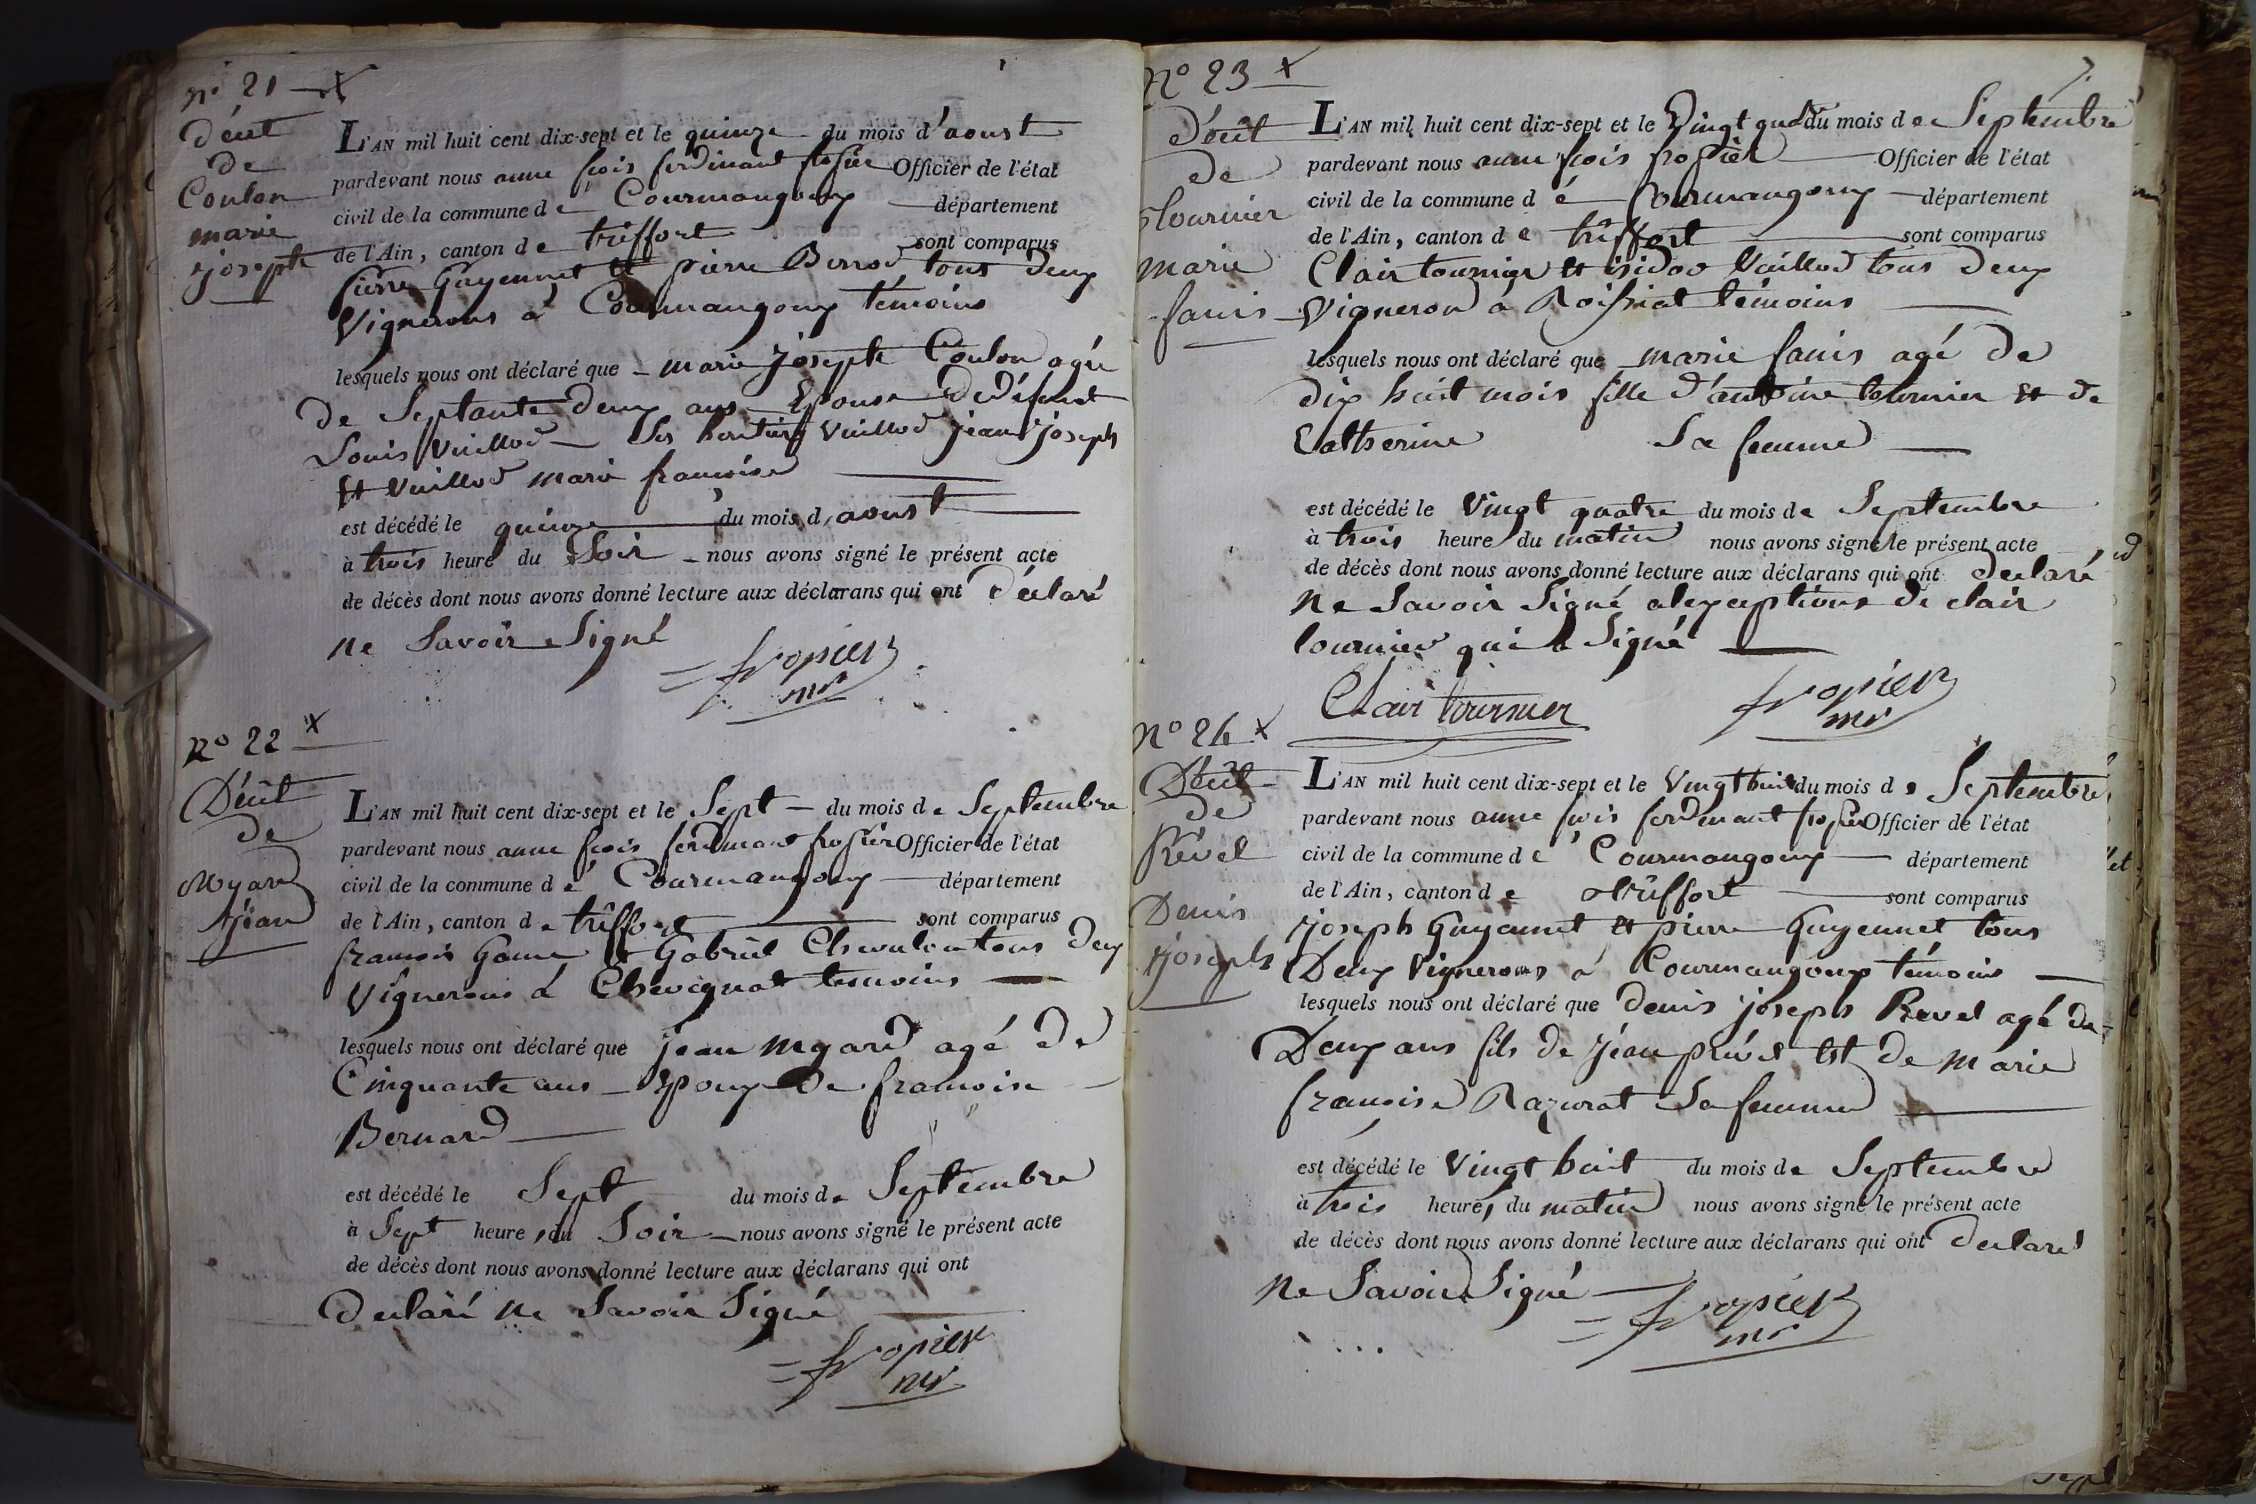 no 21
Décét
de
Coulon
marie
joseph
L'AN mil huit cent dix-sept et le quinze du mois d'aoust
pardevant nous anne fcois ferdinant fropier Officier de l'état
civil de la commune de Courmangoux département
de l'Ain, canton de trêffort sont comparus
pierre Guyennet et pierre Berrod tous deux
Vignerons à Courmangoux témoins
lesquels nous ont déclaré que marie joseph Coulon agée
de Septante deux ans Epouse de défunt
Louis Vuillod Ses heritiers Vuillod jean joseph
et Vuillod marie francoise
est décédé le quinze du mois d'aoust
à trois heure du Soir nous avons signé le présent acte
de décès dont nous avons donné lecture aux déclarans qui ont déclaré
ne Savoir Signé
fropier
mr
No 22
Décét
de
Myard
jean
L'AN mil huit cent dix-sept et le Sept du mois de Septembre
pardevant nous anne fcois ferdinand fropier Officier de l'état
civil de la commune de Courmangoux département
de l'Ain, canton de trêffort sont comparus
francois Game et Gabriel Chevalon tous deux
Vignerons à Chevignat temoins
lesquels nous ont déclaré que jean Myard agé de
Cinquante ans Epoux de francoise
Bernard
est décédé le Sept du mois de Septembre
à Sept heure du Soir nous avons signé le présent acte
de décès dont nous avons donné lecture aux déclarans qui ont
declaré ne Savoir Signé
fropier
mr
7.
No 23
Décét
de
tournier
marie
fanis
L'AN mil huit cent dix-sept et le Vingt quatre du mois de Septembre
pardevant nous anne fcois fropier Officier de l'état
civil de la commune dé Courmangoux département
de l'Ain, canton de trêffort sont comparus
Clair tournier et isidor Vuillod tous deux
Vigneron à Roissiat témoins
lesquels nous ont déclaré que marie fanis agé de
dix huit mois fille d'antoine tournier et de
Catherine Sa femme
est décédé le Vingt quatre du mois de Septembre
à trois heure du matin nous avons signé le présent acte
de décès dont nous avons donné lecture aux déclarans qui ont declaré
ne Savoir Signé alexceptions de clair
tournier qui a Signé
Clair tournier
fropier
mr
No 24
Décét
de
prével
Denis
joseph
L'AN mil huit cent dix-sept et le Vingt huit du mois de Septembre
pardevant nous anne fcois ferdinant fropier Officier de l'état
civil de la commune de Courmangoux département
de l'Ain, canton de trêffort sont comparus
joseph Guyennet et pierre Guyennet tous
Deux Vignerons à Courmangoux témoins
lesquels nous ont déclaré que denis joseph Revel agé de
Deux ans fils de jean prével et de marie
francoise Razurat Sa femme
est décédé le Vingt huit du mois de Septembre
à trois heure du matin nous avons signé le présent acte
de décès dont nous avons donné lecture aux déclarans qui ont declaré
ne Savoir Signé
fropier
mr